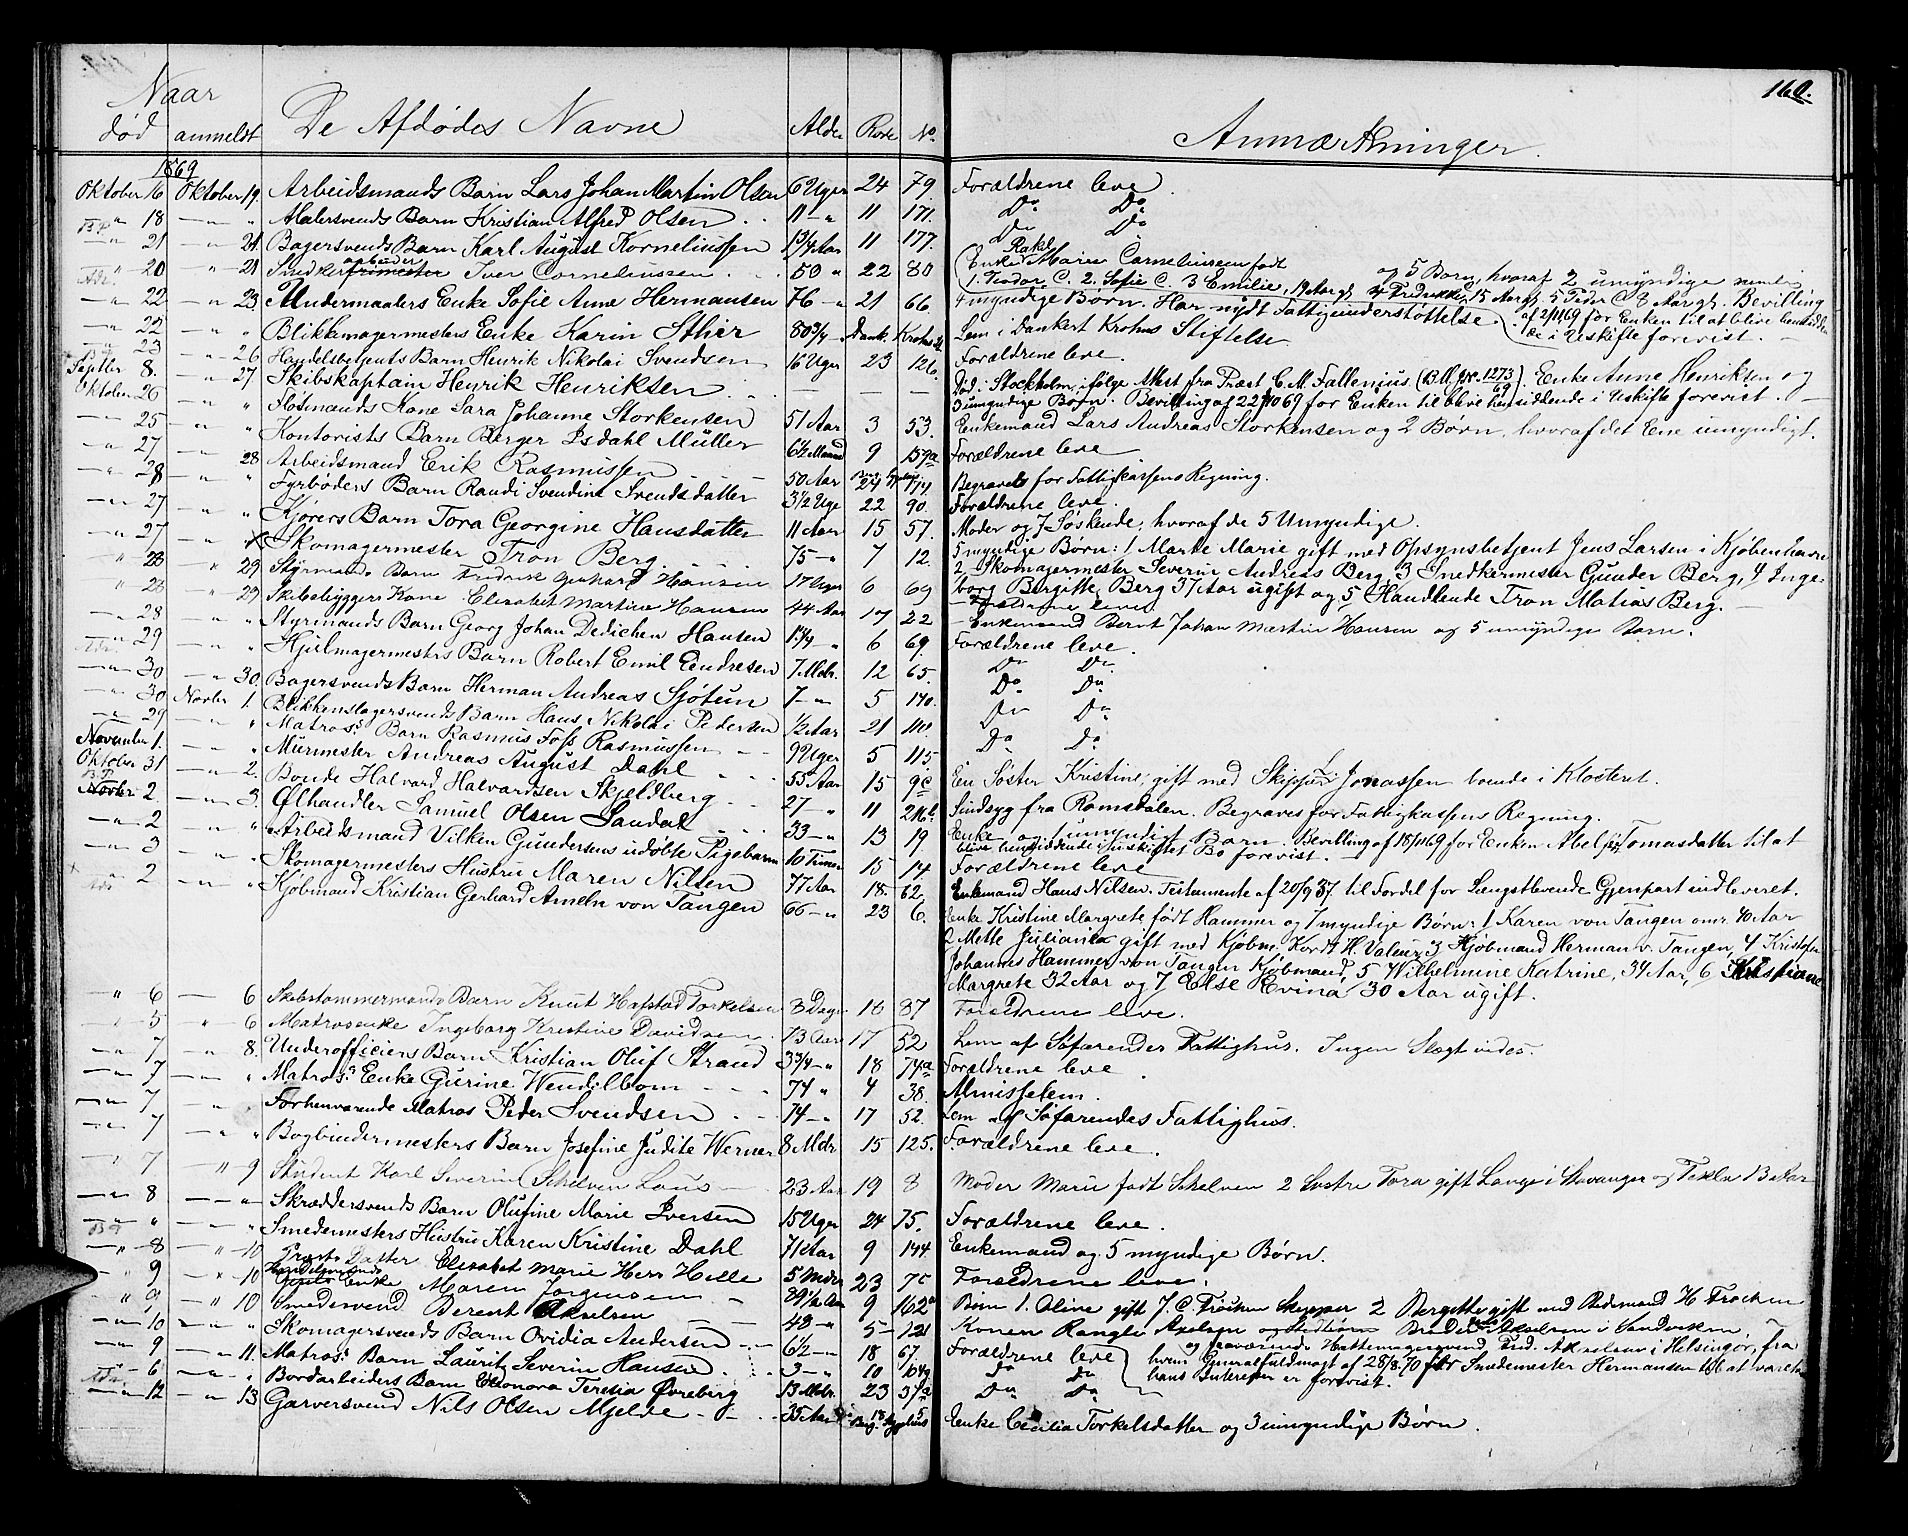 160.
Naar
død anmeldt De Afdødes Navne Alder Rode No. Anmærkninger.
1869
Oktober 16 Oktober 19. Arbeidsmands Barn Lars Johan Martin Olsen 6 Uger 24 79. Forældrene leve.
" 18 — " " Malersvends Barn Kristian Alfred Olsen 11 — " 11 171. Do Do
— " 21 — " 21. Bagersvends Barn Karl August Korneliussen 1 3/4 Aar 11 177. Do Do
" 20 " 21 Snedker Iver Corneliussen 50 " 22 80 Enke Rakel Marie Corneliussen født og 5 Børn, hvoraf 2 umyndige nemlig
1. Teodor C. 2. Sofie C. 3 Emilie, 19 Aar gl. 4 Fredrikke, 15 Aar gl. 5 Peder C 8 Aar gl. Bevilling
af 2/11 69 for Enken til at blive hensidden
de i Uskifte forevist. —
— " 22 — " 23. Undermaalers Enke Sofie Anne Hermansen 76 — " 21 66. 4 myndige Børn. Har nydt Fattigunderstøttelse.
— " 22 — " " Blikkemagermesters Enke Karin Sthir 80 3/4 — Dank. Krohns St Lem i Dankert Krohns Stiftelse
— " 23 — " 26 Handelsbetjents Barn Henrik Nikolai Svendsen 16 Uger 23 126. Forældrene leve.
Septber 8. — " 27 Skibskaptain Henrik Henriksen — — — Død i Stockholm ifølge Attest fra Præst C. M. Fallenius. (B.M. No. 1273/69). Enke Anne Henriksen og
3 umyndige Børn. Bevilling af 22/10 69 for Enken til at blive hensiddende i Uskifte forevist. —
Oktober 26 — " " Flotmands Kone Sara Johanne Storkensen 51 Aar 3 53. Enkemand Lars Andreas Storkensen og 2 Børn, hvoraf det Ene umyndigt.
— " 25 — " " Kontorists Barn Berger Isdahl Müller 6 1/2 Maaned 9 159a Forældrene leve
— " 27 — " 28 Arbeidsmand Erik Rasmussen 50 Aar 24 174. Begraves for Fattigkassens Regning.
— " 28 — " " Fyrbøders Barn Randi Svendine Svendsdatter 3 1/2 Uge 22 90. Forældrene leve.
— " 27 — " " Kjørers Barn Tora Georgine Hansdatter 11 Aar 15 57. Moder og 7 Søskende, hvoraf de 5 Umyndige.
— " 27 — " " Skomagermester Tron Berg. 75 — " 7 12. 5 myndige Børn: 1 Marte Marie gift med Opsynsbetjent Jens Larsen i Kjøbenhavn
2 Skomagermester Severin Andreas Berg, 3 Snedkermester Gunder Berg, 4 Inge-
borg Birgitte Berg 37 Aar ugift og 5 Handlende Tron Matias Berg. —
" 28 " 29 Styrmands Barn Fredrik Gerhard Hansen 17 Uger 6 69 — Forældrene leve
" 28 " 29 Skibsbyggers Kone Elisabet Martine Hansen 44 Aar 17 22 — Enkemand Bernt Johan Martin Hansen og 5 umyndige Børn.
— " 28 — " " Styrmands Barn Georg Johan Dedichen Hansen 1 3/4 — " 6 69. Forældrene leve.
— " 29 — " " Hjulmagermesters Barn Robert Emil Endresen 7 Mdr. 12 65. Do Do
— " 30 — " 30. Bagersvends Barn Herman Andreas Sjøtun 7 — " 5 140. Do Do
— " 30 Novbr 1. Blikkenslagersvends Barn Hans Nikolai Pedersen 1/2 Aar 21 110. Do Do
— " 29 — " " Matros's Barn Rasmus Foss Rasmussen 9 Uger 5 115. Do Do
November 1. — " " Murmester Andreas August Dahl 55 Aar 15 9c En Søster Kristine, gift med Skipper Jonassen boende i Klosteret.
Oktober 31 — " 2. Bonde Halvard Halvardsen Skjeldberg 27 — " 11 Sindsyg fra Romsdalen. Begraves for Fattigkassens Regning.
Novbr 2. — " 3. Ølhandler Samuel Olsen Sandal 33 — " 13 19 Enke og 1 umyndigt Barn. Bevilling af 18/11 69 for Enken Abel Tomasdatter til at
blive hensiddende i uskiftet Bo forevist. —
— " 2 — " " Arbeidsmand Vilken Gundersens udøbte Pigebarn 10 Timer 15 14 Forældrene leve
— " 3 — " " Skomagermesters Hustru Maren Nilsen 77 Aar 18 62. Enkemand Hans Nilsen. Testamente af 20/9 37 til Fordel for Længstlevende Gjenpart indleveret.
— " 2 — " " Kjøbmand Kristian Gerhard Ameln von Tangen 66 — " 23 6. Enke Kristine Margrete født Hammer og 7 myndige Børn: 1 Karen von Tangen omr. 40 Aar
2 Mette Julianka gift med Kjøbm. Kordt H. Valeur, 3 Kjøbmand Herman v. Tangen, 4 Kristofer
Johannes Hammer von Tangen Kjøbmand, 5 Wilhelmine Katrine, 34 Aar, 6 Kristiane
Margrete 32 Aar og 7 Else Revina 30 Aar ugift.
" 6 — 6 Skibstømmermands Barn Knut Hafstad Torkelsen 8 Dage 18 87 Forældrene leve.
" 5 " 6 Matrosenke Ingeborg Kristine Davidsen 73 Aar 17 52 Lem af Søfarendes Fattighus. Ingen Slægt vides.
— " 7 — " 8. Underofficiers Barn Kristian Oluf Strand 3 3/4 — " 18 74a Forældrene leve
— " 7 — " " Matros's Enke Gurine Wendilbom 74 " 4 38. Almisselem.
— " 7 — " " Forhenværende Matros Peder Svendsen 74 — " 17 52. Lem af Søfarendes Fattighus.
— " 7 — " " Bogbindermesters Barn Josefine Judite Werner 8 Mdr. 15 125. Forældrene leve.
" 7 — " 9 Student Karl Severin Schelven Laus 23 Aar 19 8 Moder Marie født Schelven 2 Søstre Tora gift Lange i Stavanger og Tekla 13 Aar
— " 8 — " Skræddersvends Barn Olufine Marie Iversen 15 Uger 24 75. Forældrene leve.
— " " — " " Smedemesters Hustru Karen Kristine Dahl 71 Aar 9 144. Enkemand og 5 myndige Børn.
— " 8 — " 10 Præsts Datter Elisabet Marie Herr Hille 5 Mdr 23 75 Forældrene leve.
" 9 " 10 Enke Maren Jørgensen 89 1/2 Aar 9 162a Børn 1. Oline gift J. C. Frøchen Skipper 2 Bergitte gift med Rodemand H Frøchen
" 9 " 10 Smedesvend Berent Akselsen 43 — " 5 — 121 Konen Rangle Axelsen
og fraværende Hattemagersvend Fred. Akselsen i Helsingør, fra
hvem Generalfuldmagt af 28/8. 70 for Smedemester Hermansen til at varetage
hans Interesser er forevist.
— " 10 — " Skomagersvends Barn Ovidia Andersen 6 1/2 — " 18 67. Forældrene leve
— " 9 — " 11. Matros's Barn Laurits Severin Hansen 3 — " 10 Do Do
— " 6 — " " Bordarbeiders Barn Eleonora Teresia Øvreberg 13 Mdr. 23 37a Do Do
— " 12 — " 13 Garversvend Nils Olsen Mjelde 35 Aar 18 5 Enke Cecilia Torkelsdatter og 3 umyndige Børn.